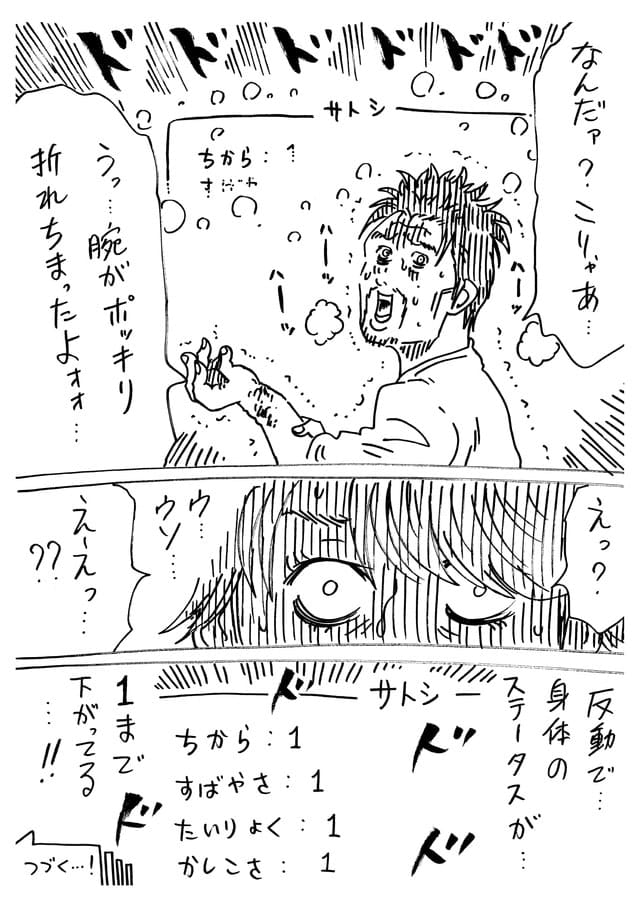 ドドドドドド
なんだァ?こりゃあ…
サトシ
ちから:1
うっ…腕がポッキリ
折れちまったよォォ…
ハーッ
ハーッ
ハーッ
えっ?
ウ…
ウソ…
えーえっ…
??
反動で…
身体の
ステータスが…
ド
サトシ
ちから:1
すばやさ:1
たいりょく:1
かしこさ:1
ド
ド
ド
1まで
下がってる
…!!
つづく…!